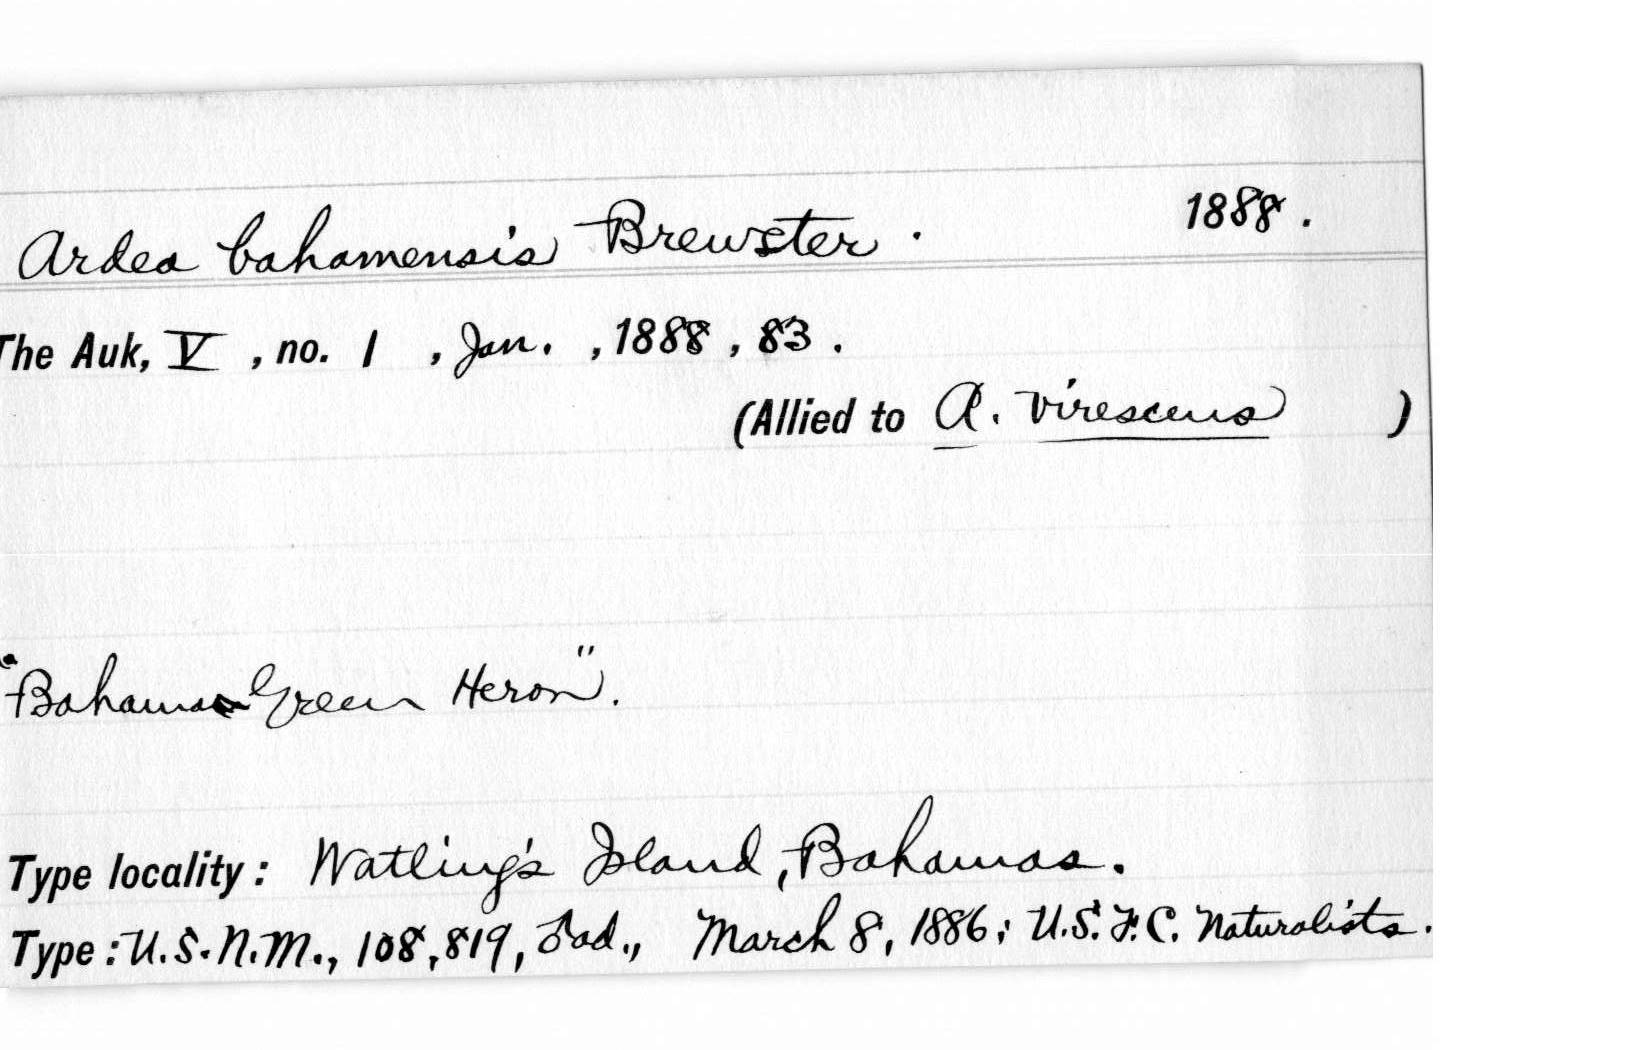 Ardea bahamensis Brewster. 1888.
The Auk, V, no. 1, Jan., 1888, 83.
(Allied to A. virescens)
"Bahama Green Heron".
Type locality: Watling's Island, Bahamas.
Type: U.S.N.M., 108,819, ♂ad., March 8, 1886; U.S.F.C. Naturalists.